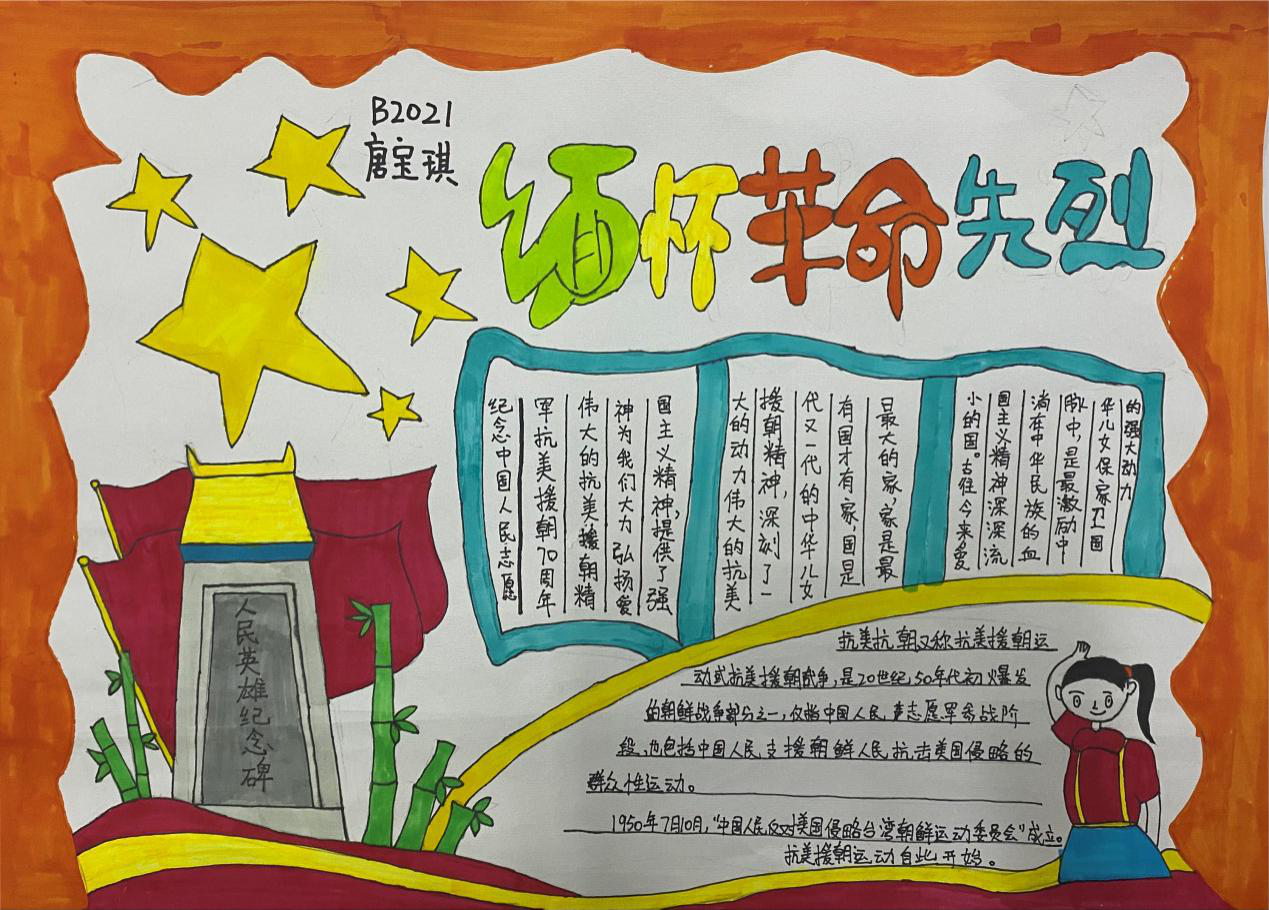 B2021
唐宝琪
缅怀革命先烈
纪念中国人民志愿
军抗美援朝70周年
伟大的抗美援朝精
神为我们大力弘扬爱
国主义精神,提供了强
大的动力伟大的抗美
援朝精神,深刻了一
代又一代的中华儿女
有国才有家,国是
最大的家,家是最
小的国。古往今来爱
国主义精神深深流
淌在中华民族的血
脉中,是最激励中
华儿女保家卫国
的强大动力
人民英雄纪念碑
抗美抗朝又称抗美援朝运
动或抗美援朝战争,是20世纪,50年代初爆发
的朝鲜战争部分之一,仅指中国人民,志愿军参战阶
段,也包括中国人民,支援朝鲜人民,抗击美国侵略的
群众性运动。
1950年7月10月,"中国人民反对美国侵略台湾朝鲜运动委员会"成立。
抗美援朝运动自此开始。